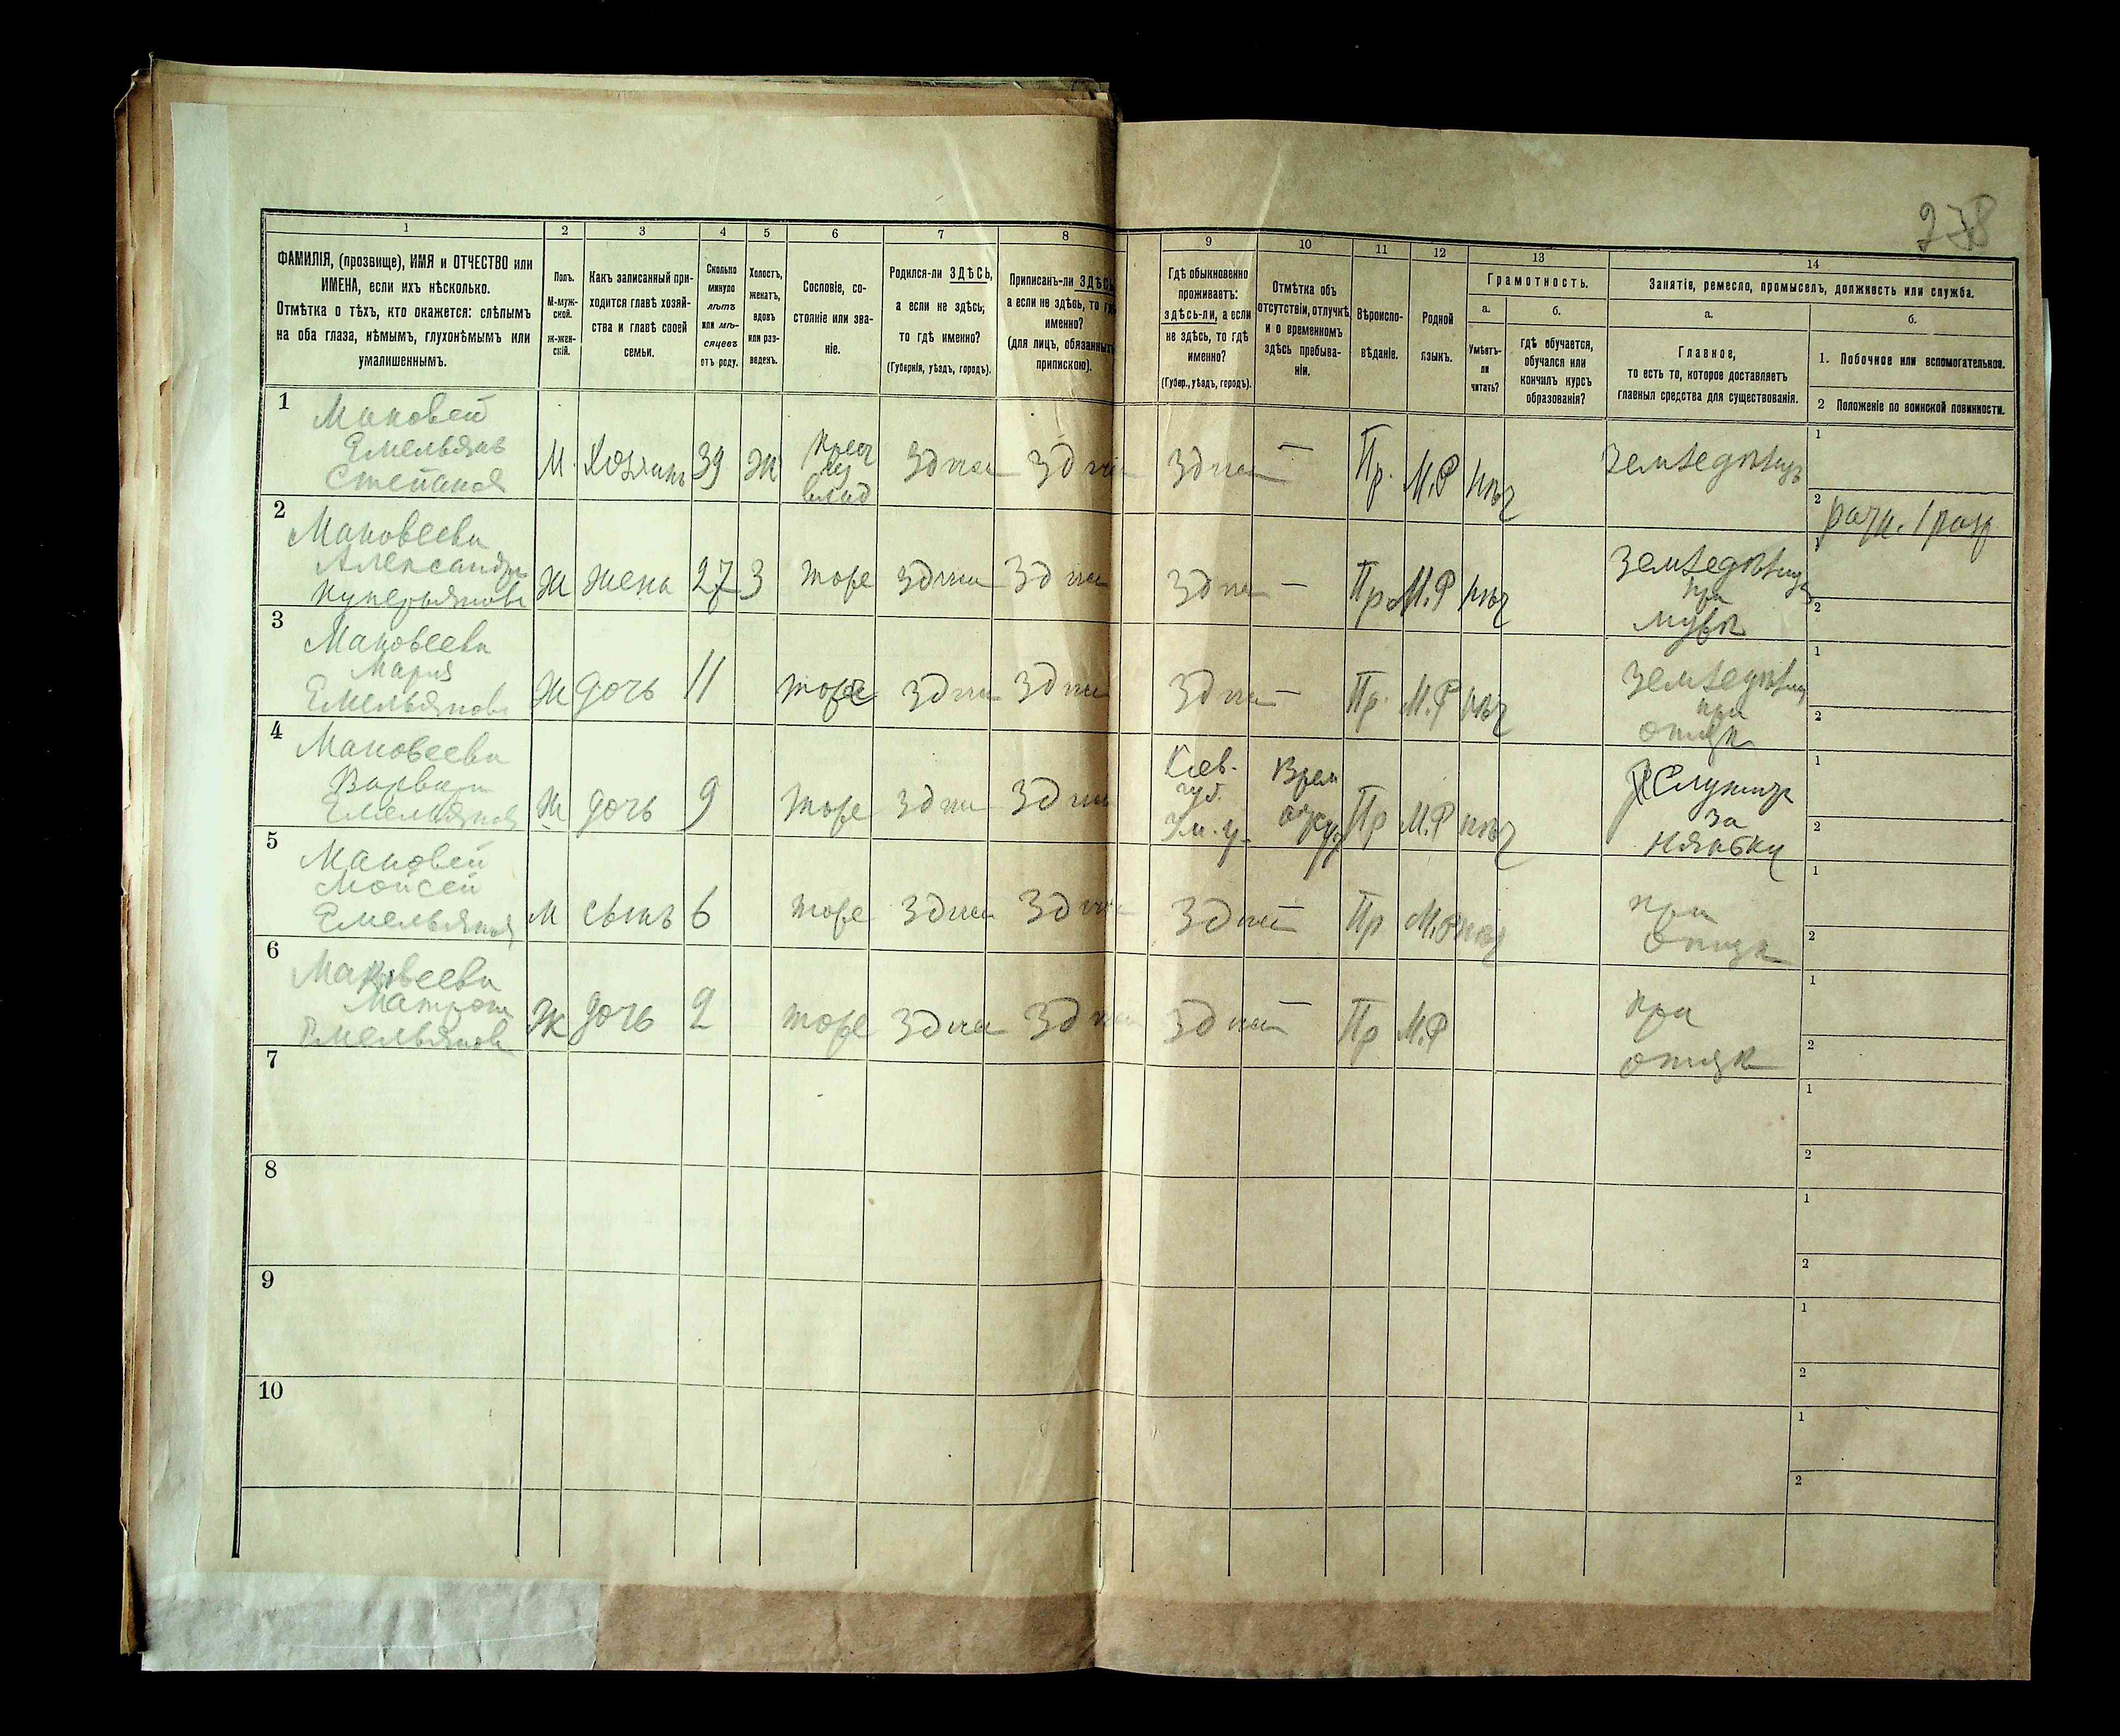 238
1 2 3 4 5 6 7 8 9 10 11 12 13 14
ФАМИЛІЯ, (прозвище), ИМЯ и ОТЧЕСТВО или
ИМЕНА, если ихъ нѣсколько.
Отмѣтка о тѣхъ, кто окажется: слѣпымъ
на оба глаза, нѣмымъ, глухонѣмымъ или
умалишеннымъ.
Полъ.
М-муж-
ской.
ж-жен-
скій.
Какъ записанный при-
ходится главѣ хозяй-
ства и главѣ своей
семьи.
Сколько
минуло
лѣтъ
или мѣ-
сяцевъ
отъ роду.
Холостъ,
женатъ,
вдовъ
или раз-
веденъ.
Сословіе, со-
стояніе или зва-
ніе.
Родился-ли ЗДѢСЬ,
а если не здѣсь,
то гдѣ именно?
(Губернія, уѣздъ, городъ).
Приписанъ-ли ЗДѢСЬ,
а если не здѣсь, то гдѣ
именно?
(для лицъ, обязанныхъ
припискою).
Гдѣ обыкновенно
проживаетъ:
здѣсь-ли, а если
не здѣсь, то гдѣ
именно?
(Губер., уѣздъ, городъ).
Отмѣтка объ
отсутствіи, отлучкѣ
и о временномъ
здѣсь пребыва-
ніи.
Вѣроиспо-
вѣданіе.
Родной
языкъ.
Грамотность.
а.
Умѣетъ-
ли
читать?
б.
гдѣ обучается,
обучался или
кончилъ курсъ
образованія?
Занятія, ремесло, промыселъ, должность или служба.
а.
Главное,
то есть то, которое доставляетъ
главныя средства для существованія.
б.
1. Побочное или вспомогательное.
2 Положеніе по воинской повинности.
1 Маковей
Емельянъ
Степановъ
М. Хозяинъ 39 Ж
Здѣсь Здѣсь Здѣсь — Пр. М.Р нѣт Земледѣлецъ
1
2
2 Маковеева
Александра
Ж жена 27 З тоже Здѣсь Здѣсь Здѣсь — Пр М.Р нѣт Земледѣлица
при
мужѣ
1
2
3 Маковеева
Мария
Емельянова
Ж дочь 11 тоже Здѣсь Здѣсь Здѣсь — Пр. М.Р нѣт
при
отцѣ
1
2
4 Маковеева
Варвара
Емельянова
Ж дочь 9 тоже Здѣсь Здѣсь
Кіев.
губ.
Ум. у.
Пр М.Р нѣт
Служитъ
за
няньку
1
2
5 Маковей
Мойсей
Емельяновъ
М сынъ 6 тоже Здѣсь Здѣсь Здѣсь — Пр М.Р нѣт
при
отцѣ
1
2
6 Маковеева
Матрона
Емельянова
Ж дочь 2 тоже Здѣсь Здѣсь Здѣсь — Пр М.Р
при
отцѣ
1
2
7
1
2
8
1
2
9
1
2
10
1
2